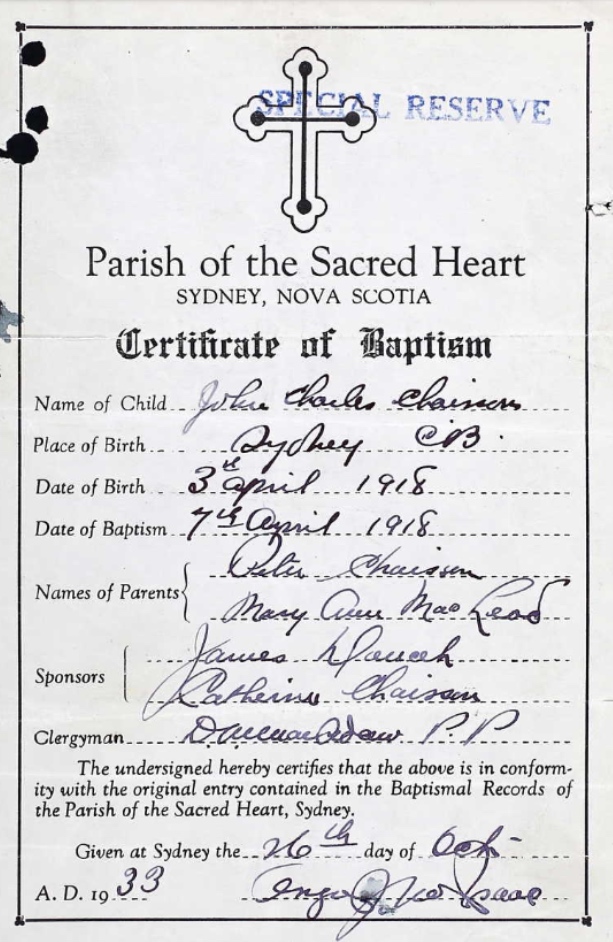 SPECIAL RESERVE
Parish of the Sacred Heart
SYDNEY, NOVA SCOTIA
Certificate of Baptism
Name of Child John Charles Chaisson
Place of Birth Sydney C.B.
Date of Birth 3rd April 1918
Date of Baptism 7th April 1918
Names of Parents Peter Chaisson
Mary Ann MacLeod
Sponsors James
Catherine Chaisson
Clergyman P.P
The undersigned hereby certifies that the above is in conform-
ity with the original entry contained in the Baptismal Records of
the Parish of the Sacred Heart, Sydney.
Given at Sydney the 26th day of Oct
A. D. 1933